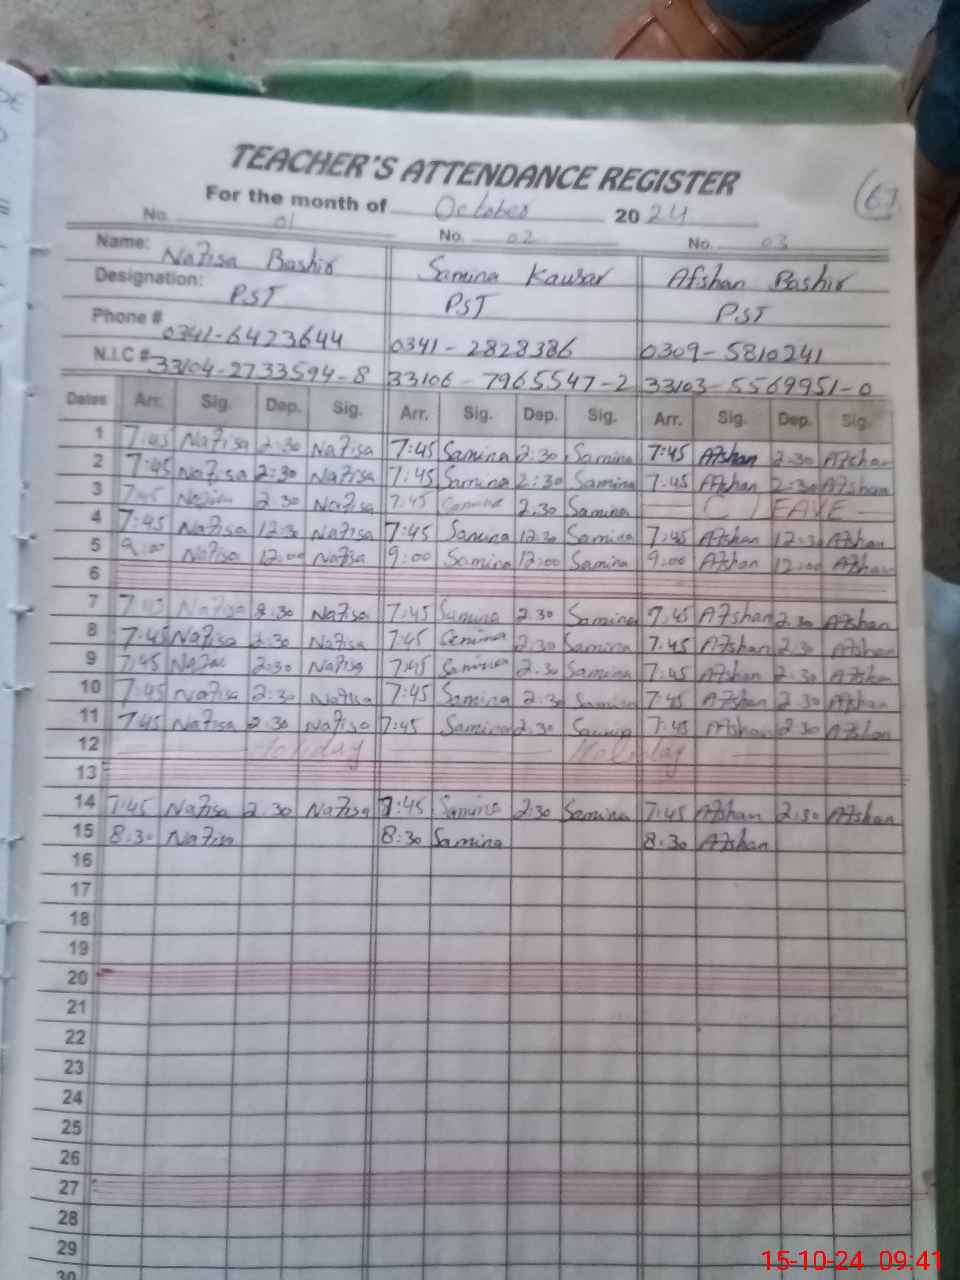 TEACHER'S ATTENDANCE REGISTER
For the month of October 2024
No. 01 No. 02 No. 03
Name: Nafisa Bashir Samina Kausar Afshan Bashir
Designation: PST PST PST
Phone # 0341-6423644 0341-2828386 0309-5810241
N.I.C # 33104-2733594-8 33106-7965547-2 33103-5569951-0
Dates Arr. Sig. Dep. Sig. Arr. Sig. Dep. Sig. Arr. Sig. Dep. Sig.
1 7:45 Nafisa 2:30 Nafisa 7:45 Samina 2:30 Samina 7:45 Afshan 2:30 Afshan
2 7:45 Nafisa 2:30 Nafisa 7:45 Samina 2:30 Samina 7:45 Afshan 2:30 Afshan
3 7:45 Nafisa 2:30 Nafisa 7:45 Samina 2:30 Samina C LEAVE
4 7:45 Nafisa 12:30 Nafisa 7:45 Samina 12:30 Samina 7:45 Afshan 12:30 Afshan
5 9:00 Nafisa 12:00 Nafisa 9:00 Samina 12:00 Samina 9:00 Afshan 12:00 Afshan
6
7 7:45 Nafisa 2:30 Nafisa 7:45 Samina 2:30 Samina 7:45 Afshan 2:30 Afshan
8 7:45 Nafisa 2:30 Nafisa 7:45 Samina 2:30 Samina 7:45 Afshan 2:30 Afshan
9 7:45 Nafisa 2:30 Nafisa 7:45 Samina 2:30 Samina 7:45 Afshan 2:30 Afshan
10 7:45 Nafisa 2:30 Nafisa 7:45 Samina 2:30 Samina 7:45 Afshan 2:30 Afshan
11 7:45 Nafisa 2:30 Nafisa 7:45 Samina 2:30 Samina 7:45 Afshan 2:30 Afshan
12 Holiday Holiday
13
14 7:45 Nafisa 2:30 Nafisa 7:45 Samina 2:30 Samina 7:45 Afshan 2:30 Afshan
15 8:30 Nafisa 8:30 Samina 8:30 Afshan
16
17
18
19
20
21
22
23
24
25
26
27
28
29
30
15-10-24 09:41